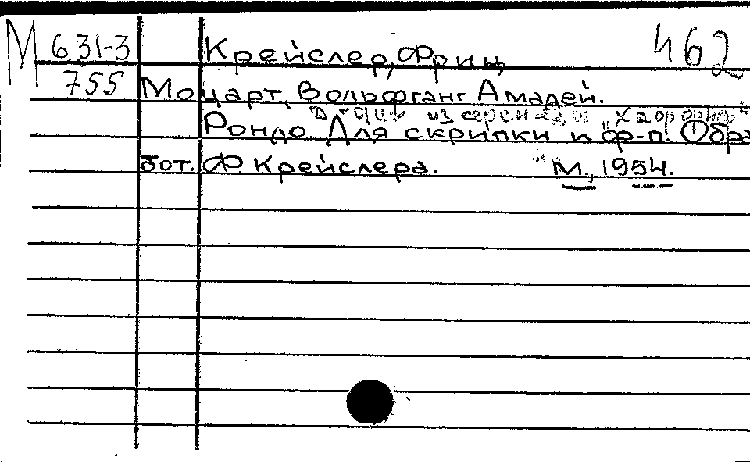 М 631-3 Крейслер, Фриц 462
755 Моцарт, Вольфганг Амадей.
из серенады "Хаффнер"
Рондо. Для скрипки и ф-п. Обра
бот. Ф Крейслера. М., 1954.